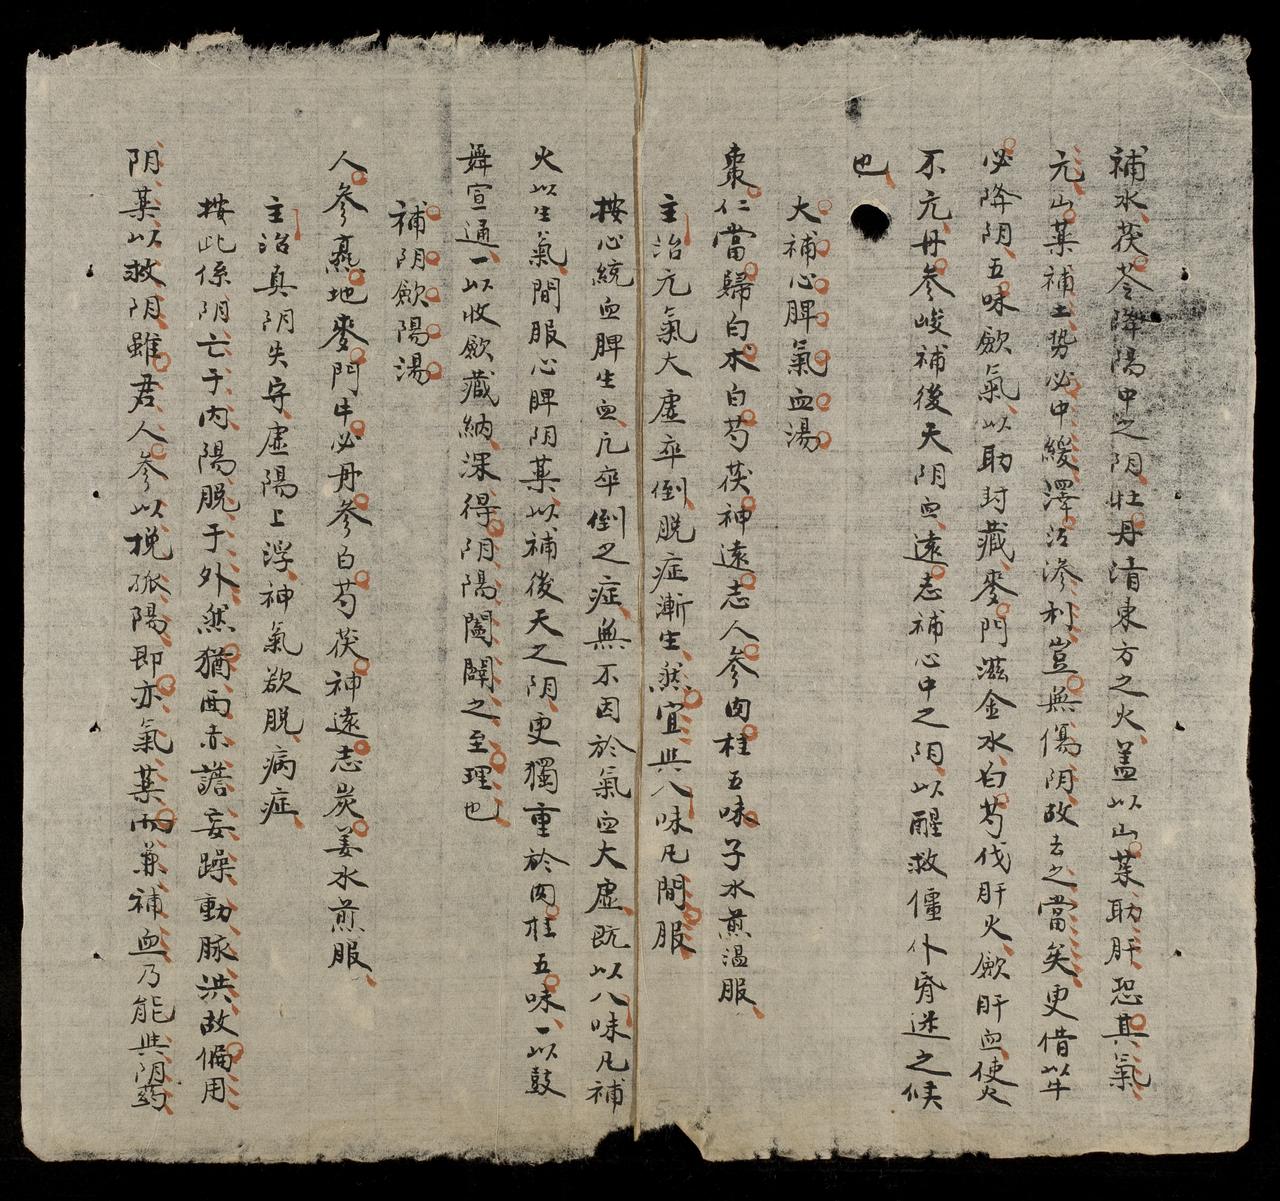 補水茯苓降陽中之阴牡丹清東方之火蓋以山茱助肝恐其氣
元山薬補土势必中緩澤泻渗利豈無傷阴故去之當矣更借以牛
必降阴五味歛氣以助封藏麥門滋金水白芍伐肝火歛肝血使火
不亢丹参峻補後天阴血遠志補心中之阴以醒救僵仆脊迷之候
也
大補心脾氣血湯
棗仁當歸白术白芍茯神遠志人參肉桂五味子水煎温服
主治元氣大虛卒倒脱症漸生然宜與八味凡間服
按心統血脾生血凡卒倒之症無不因於氣血大虛既以八味凡補
火以生氣間服心脾阴薬以補後天之阴更獨重於肉桂五味一以鼓
舞宣通一以收歛藏納深得阴陽闔闢之至理也
補阴歛陽湯
人參熹地麥門牛必丹参白芍茯神遠志炭姜水煎服
主治真阴失守虛陽上浮神氣欲脱病症
按此係阴亡于内陽脱于外然猶面赤譫妄躁動脉洪故偏用
阴薬以救阴雖君人參以挽孤陽即亦氣薬而兼補血乃能與阴药